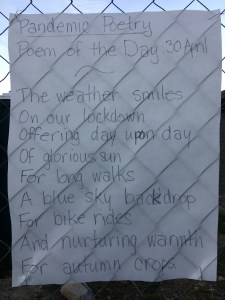 Pandemic Poetry
Poem of the Day 30 April
The weather smiles
On our lockdown
Offering day upon day
Of glorious sun
For long walks
A blue sky backdrop
For bike rides
And nurturing warmth
For autumn crops